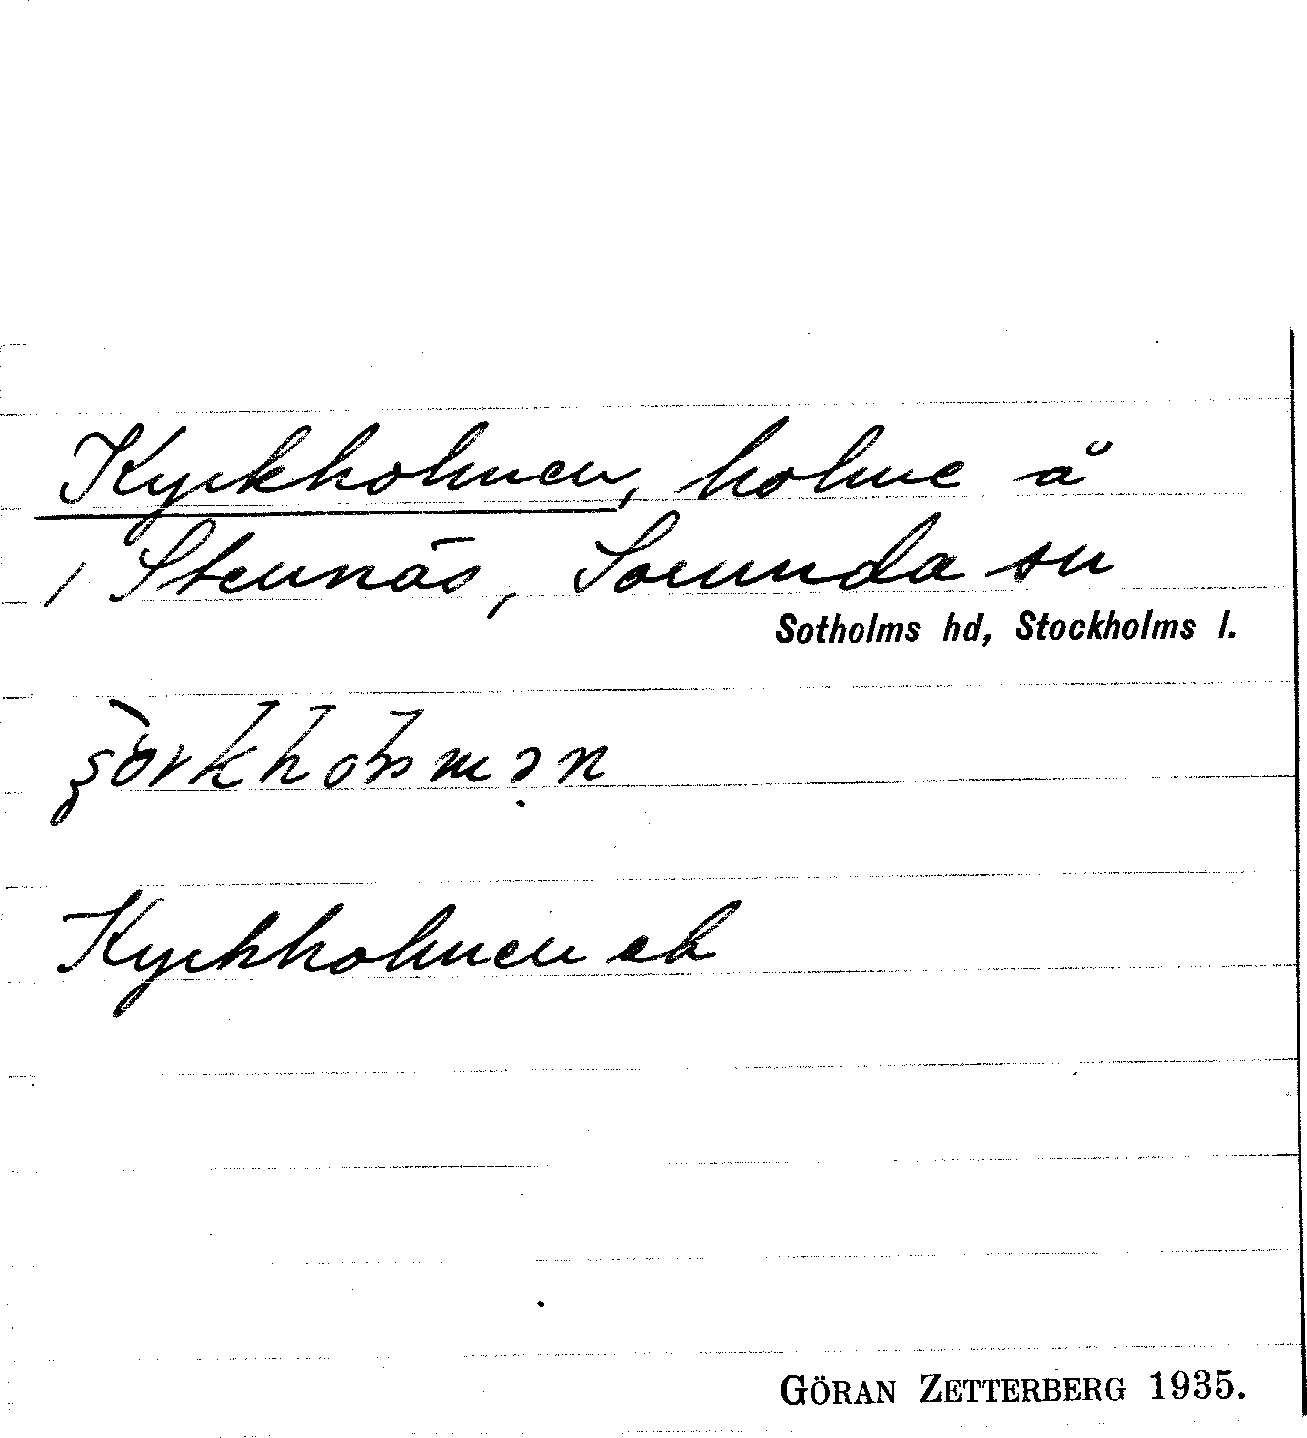 Kyrkholmen, holme å
/ Stennäs, Sorunda sn
Sotholms hd, Stockholms l.
Kyrkholmen ek
GÖRAN ZETTERBERG 1935.